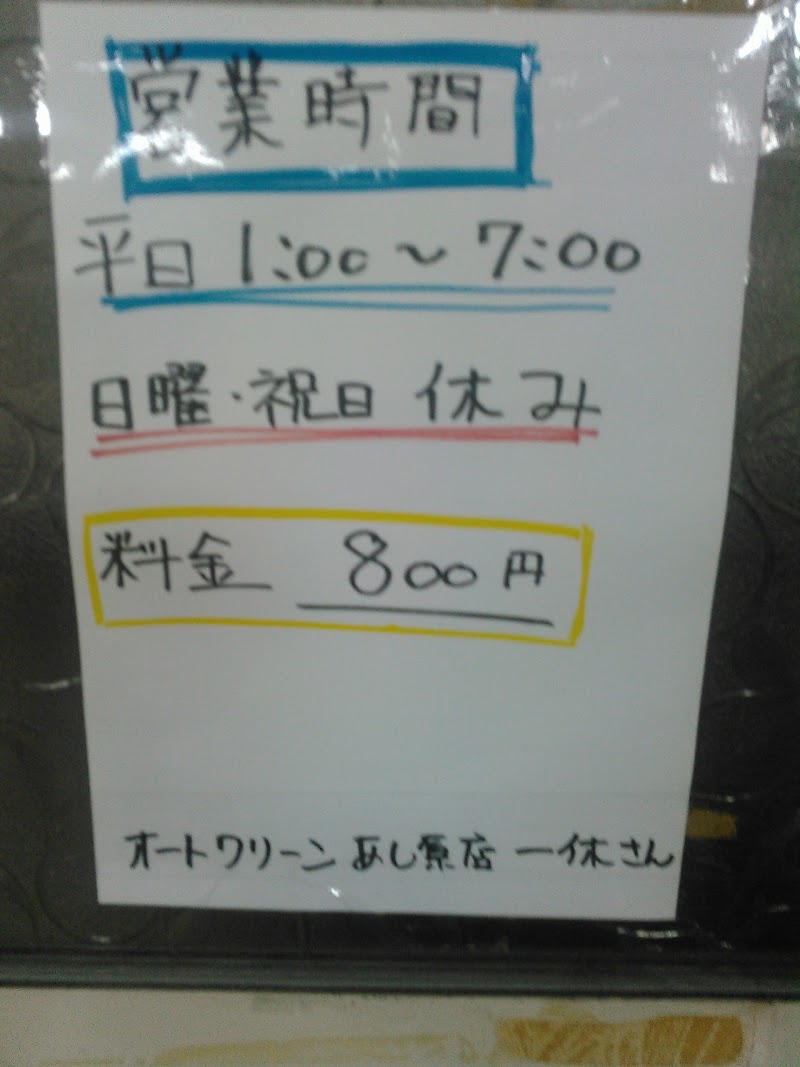 営業時間
平日 1:00～7:00
日曜・祝日 休み
料金 800円
オートクリーン あし原店 一休さん